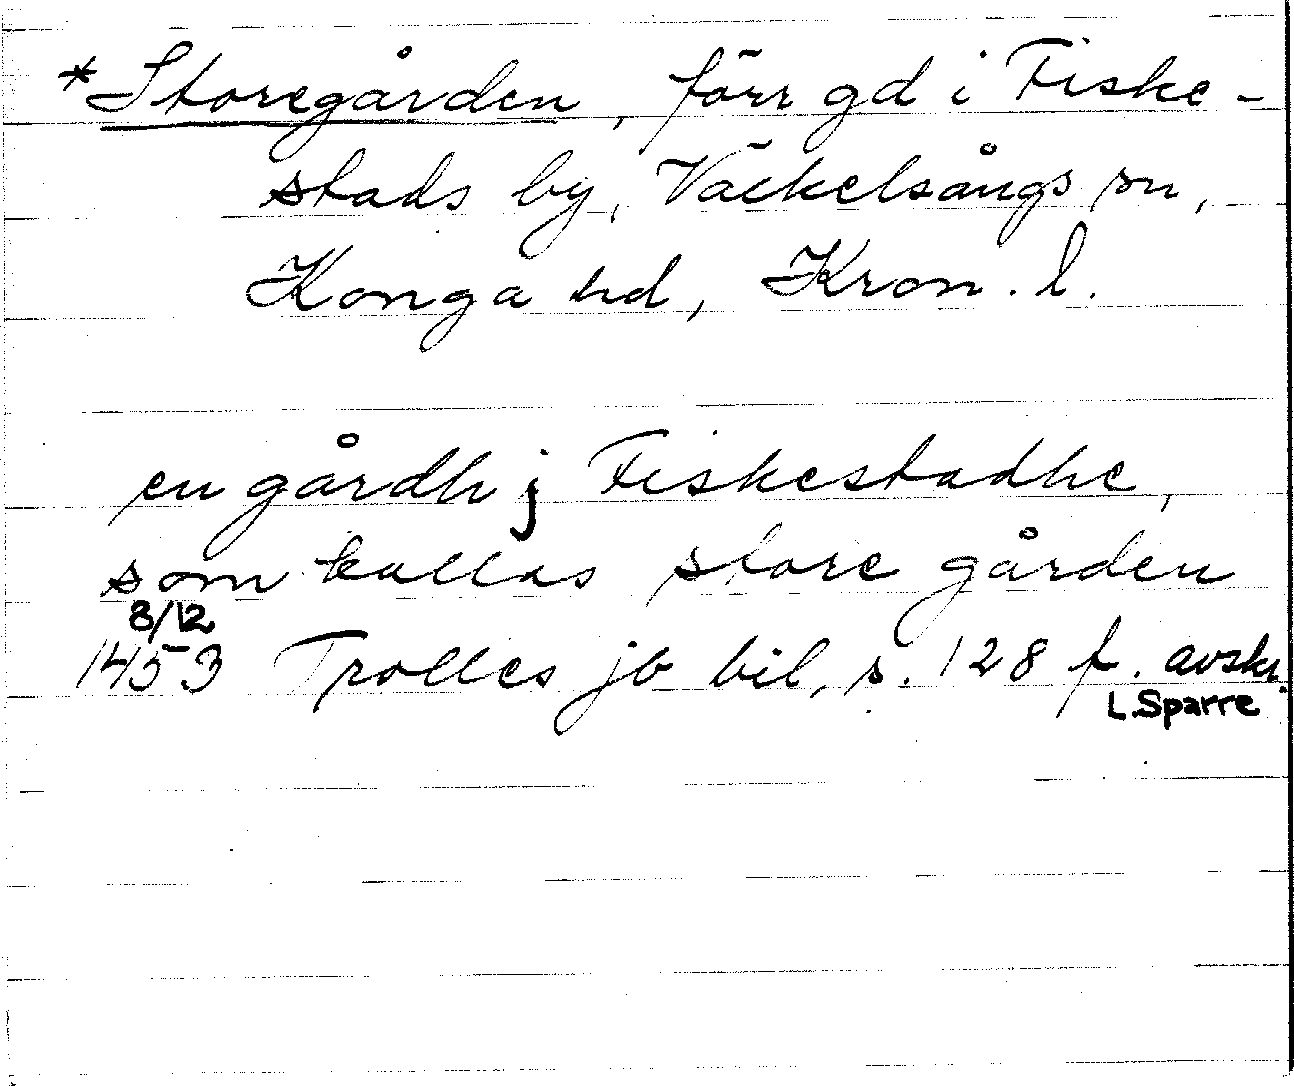 *Storegården, förr gd i Fiske-
stads by, Väckelsångs sn,
Konga hd, Kron. l.
en gårdh j Fiskestadhe,
som kallas store gården
8/12
1453 Trolles jb bil, s. 128 f. avskr.
L. Sparre